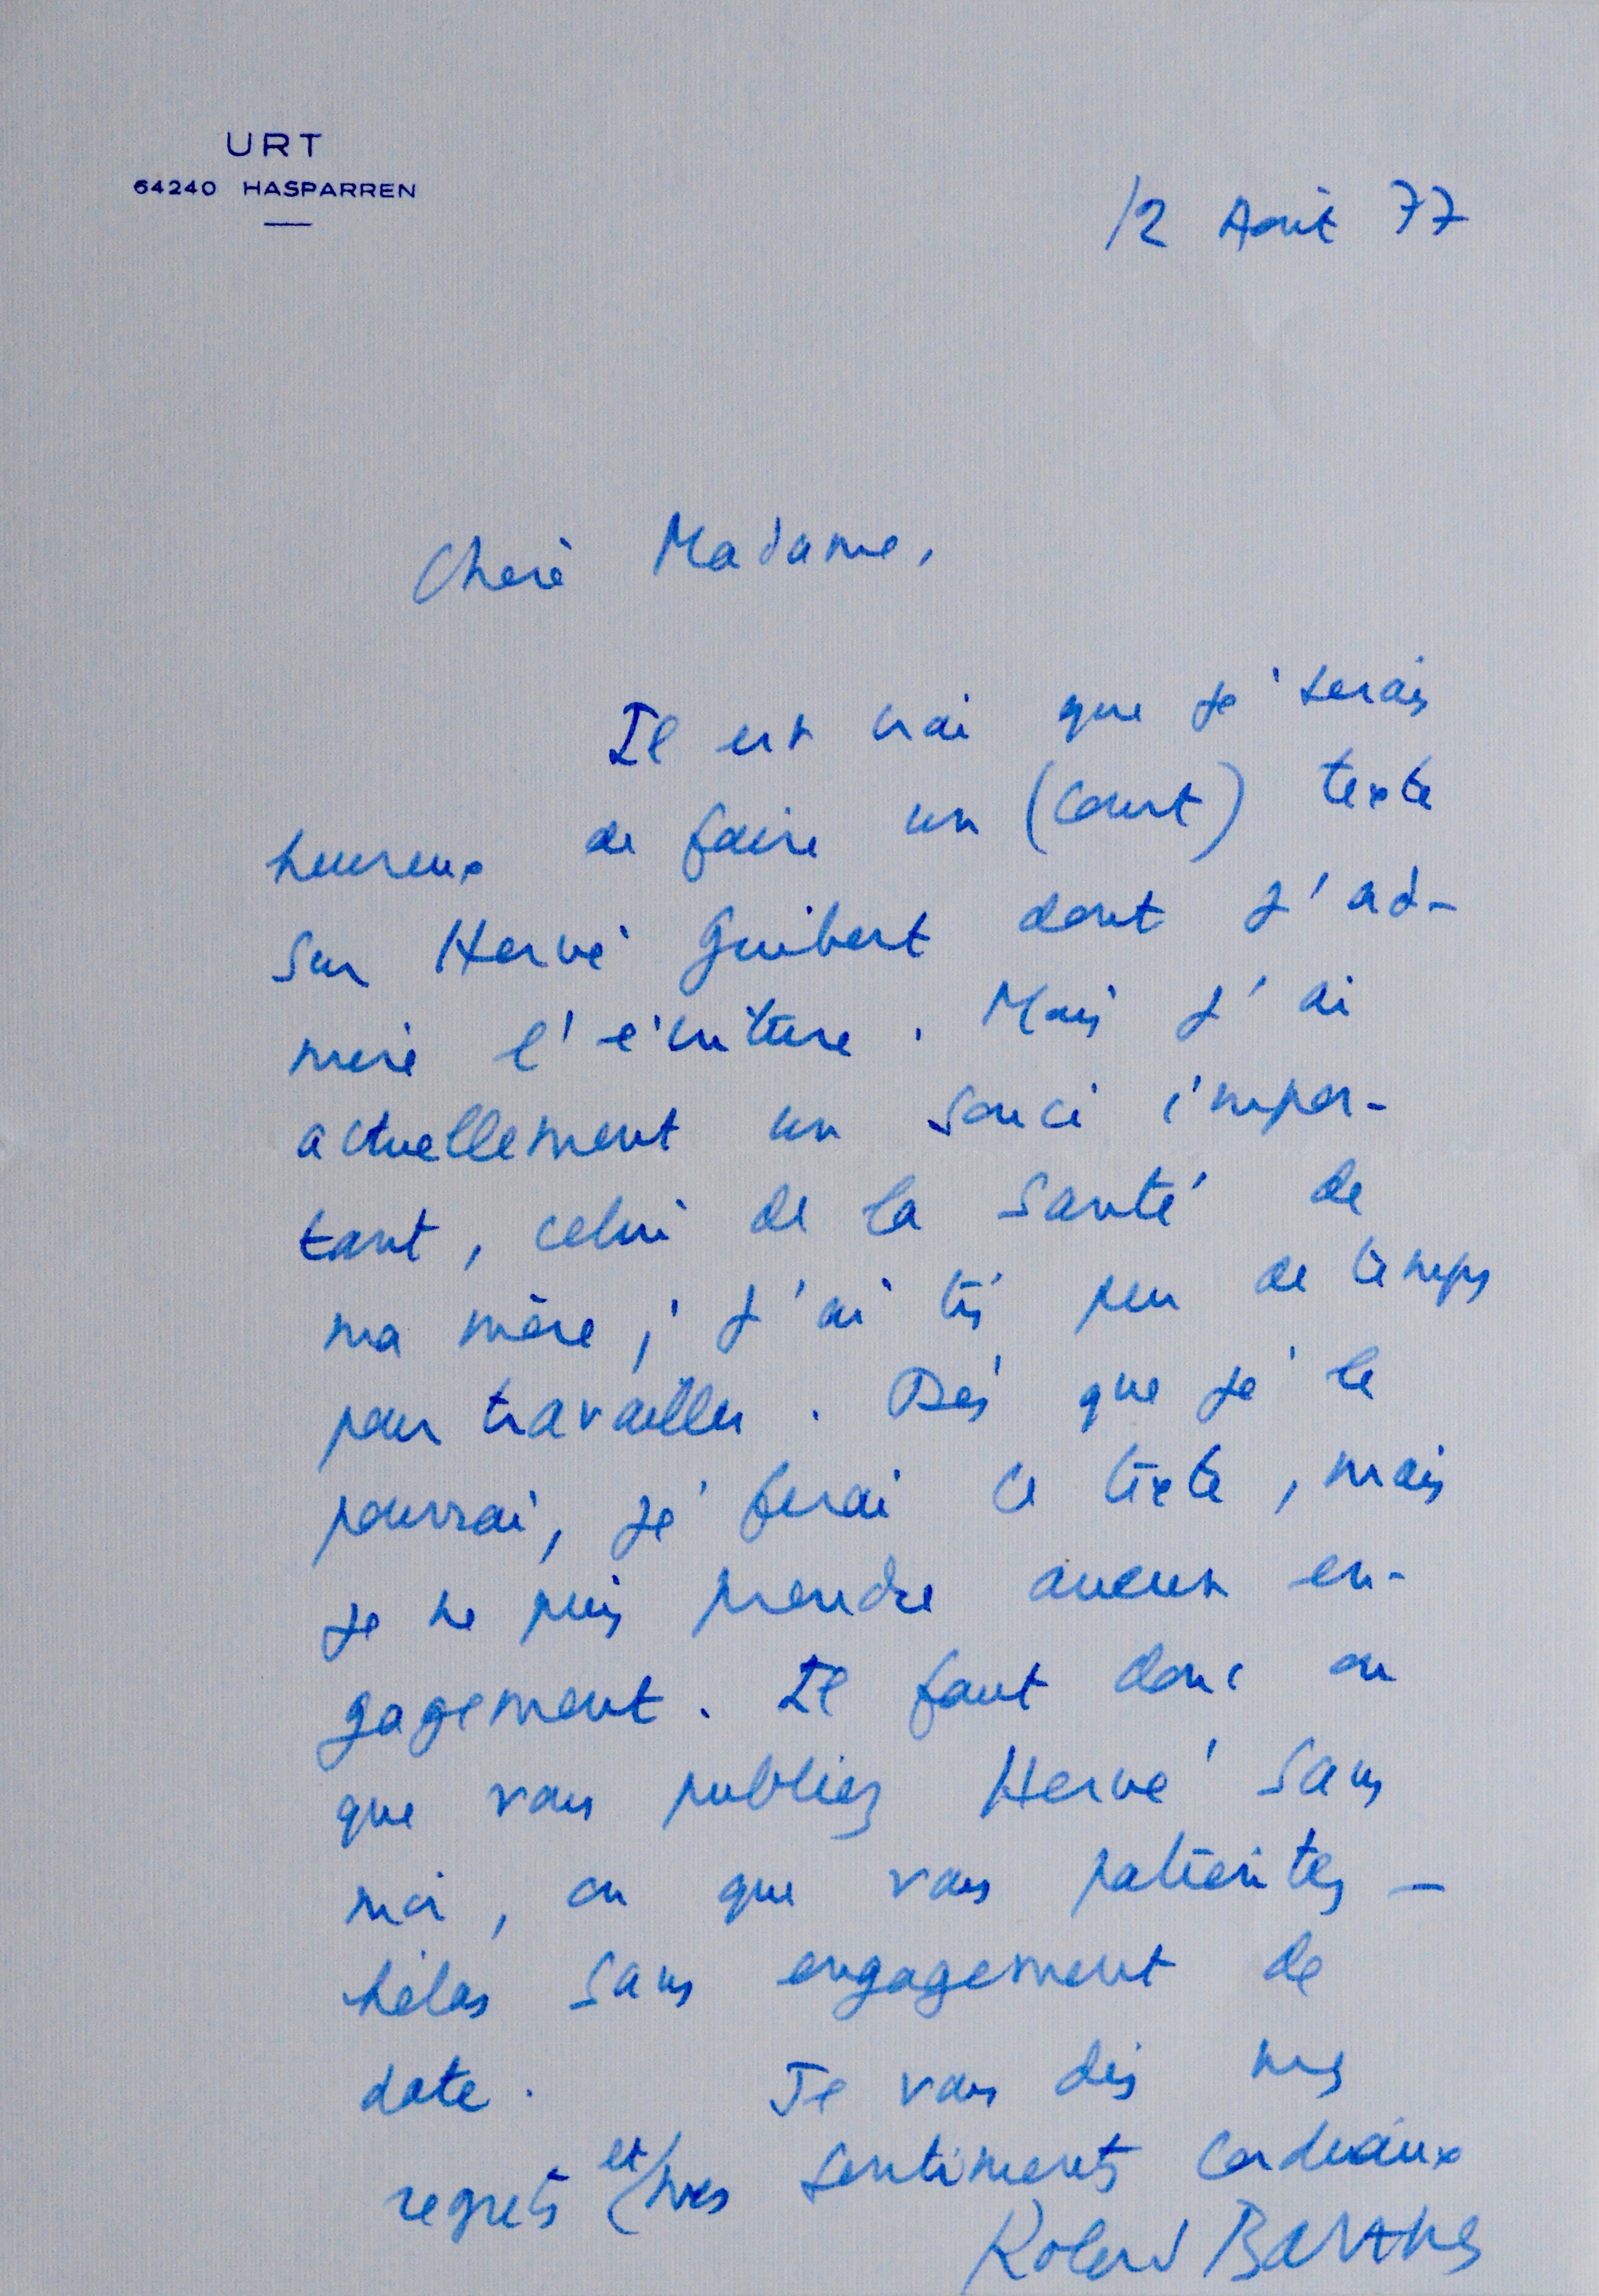 URT
64240 HASPARREN
12 Août 77
Chère Madame,
Il est vrai que je serais
heureux de faire un (court) texte
sur Hervé Guibert dont j'ad-
mire l'écriture. Mais j'ai
actuellement un souci impor-
tant, celui de la santé de
ma mère ; j'ai très peu de temps
pour travailler. Dès que je le
pourrai, je ferai ce texte, mais
je ne puis prendre aucun en-
gagement. Il faut donc ou
que vous publiez Hervé sans
moi, ou que vous patientiez –
hélas sans engagement de
date. Je vous dis mes
regrets et mes sentiments cordiaux
Roland Barthes